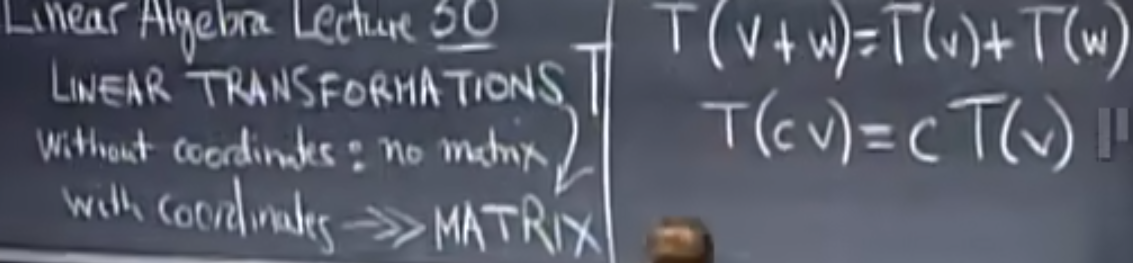 Linear Algebra Lecture 30
LINEAR TRANSFORMATIONS T
Without coordinates : no matrix
with coordinates ->> MATRIX
T(v+w)=T(v)+T(w)
T(cv)=cT(v)